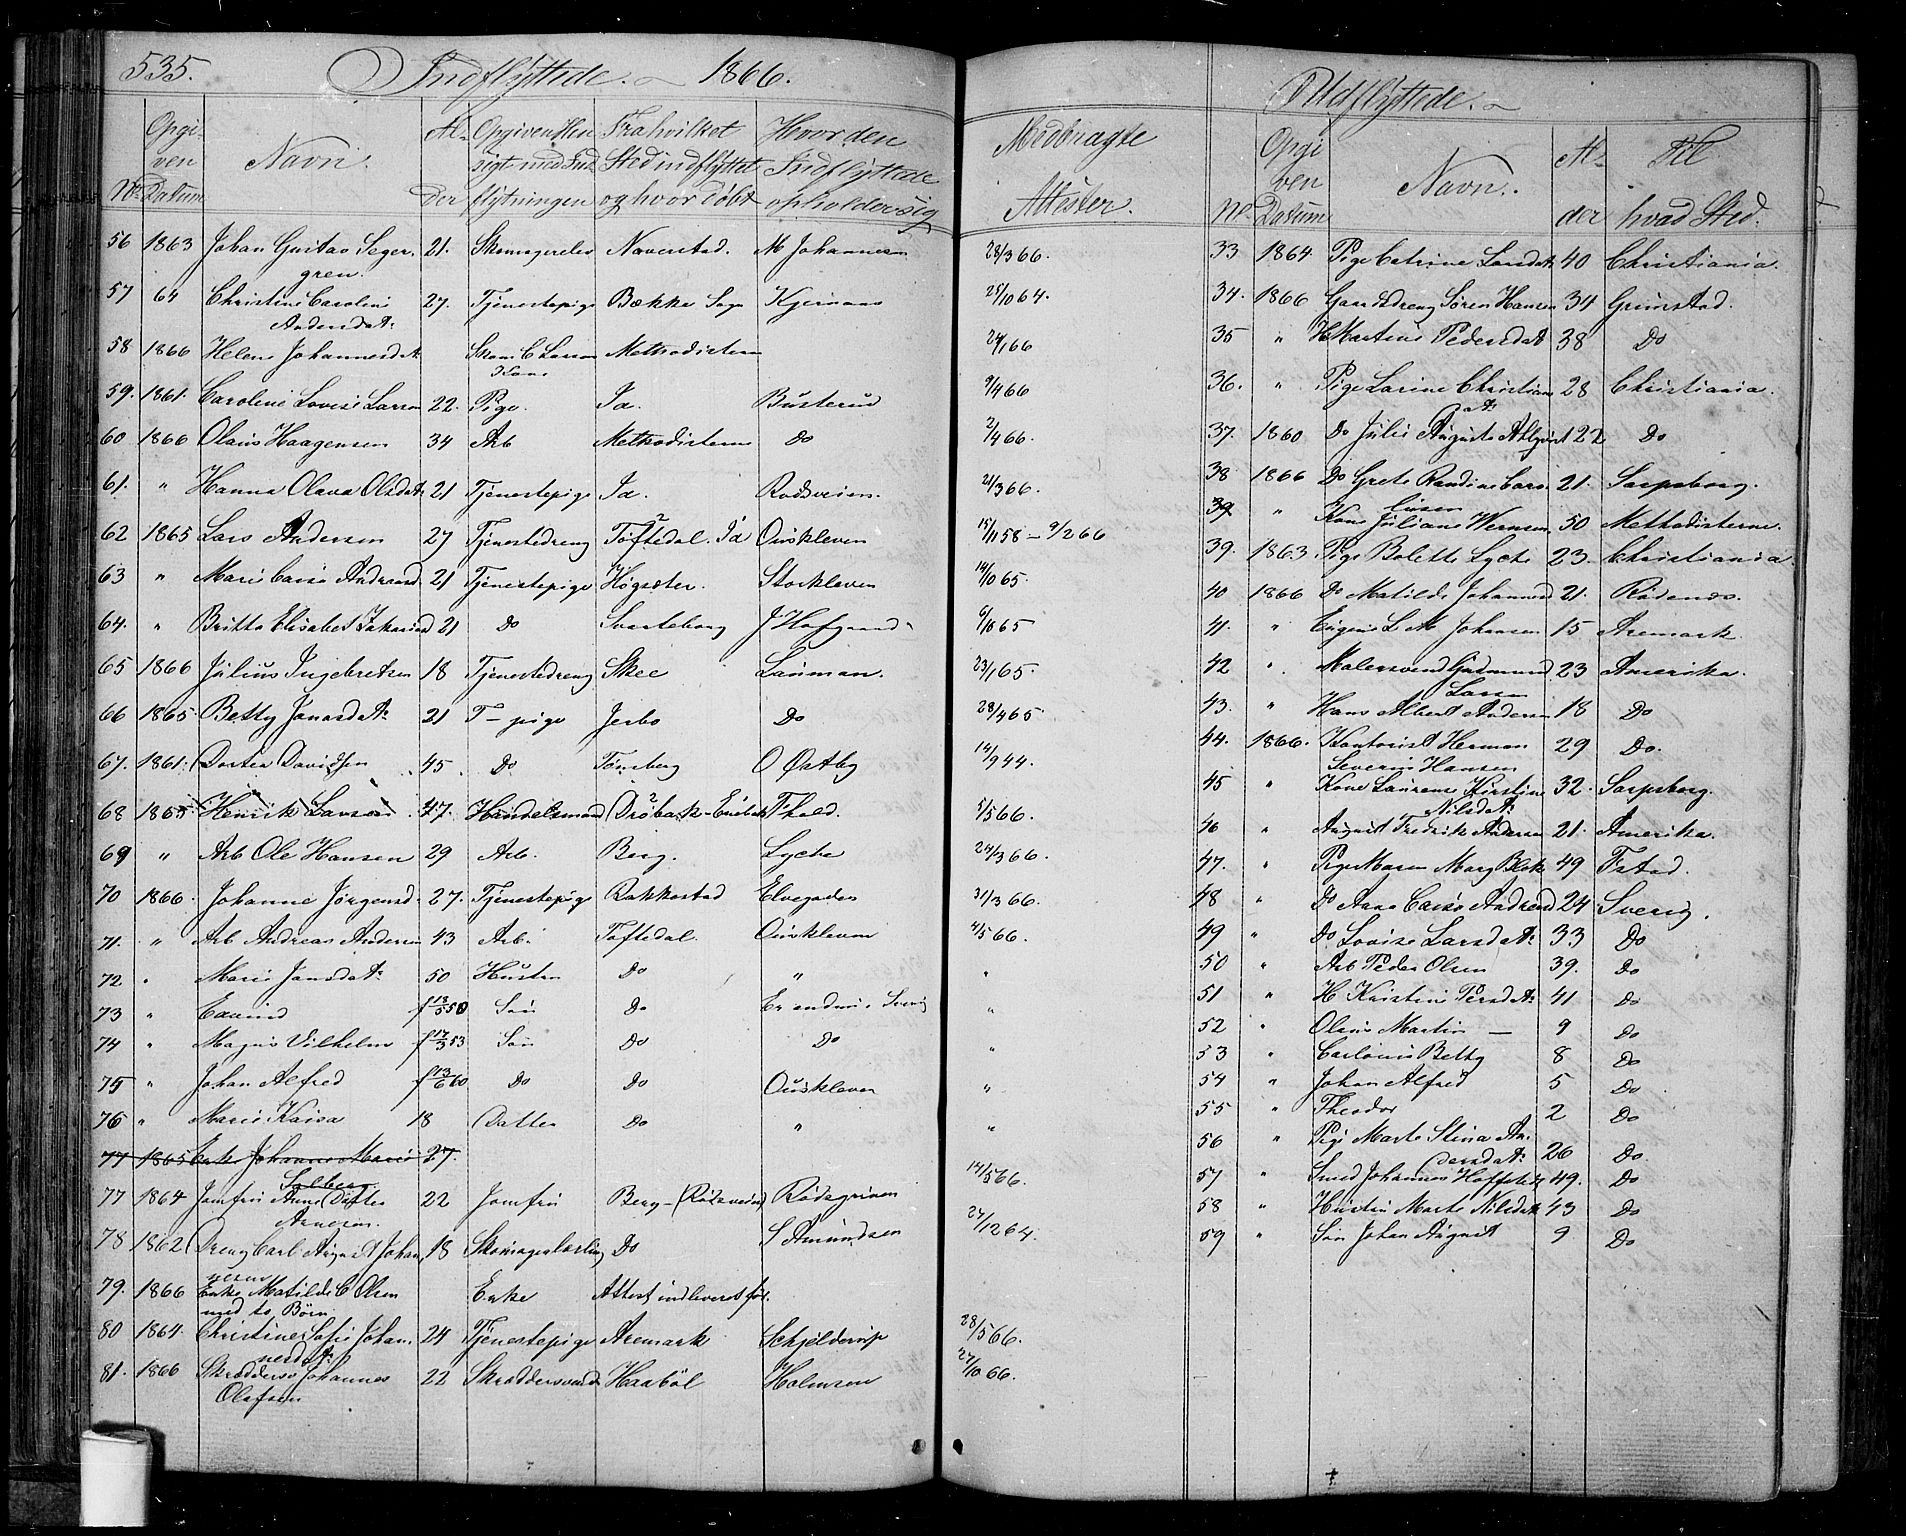 535. Indflyttede. 1866.
No. Opgiven Datum Navn. Alder Opgiven Hensigt med Indflytningen Fra hvilket Sted indflyttet og hvor døbt Hvor den Indflyttede opholder sig Medbragte Attester.
56 1863 Johan Gustav Segergren. 21. Naverstad. M Johannesen 28/3 66.
57 64 Christine Caroline Andersdtr 27. Tjenestepige Bække Sogn 25/10 64.
58 1866 Helene Johannesdtr Skom. C Larsen Kone Methodisterne 24/1 66
59. 1861. Caroline Lovise Larsen 22. Pige Id. Busterud 9/4 66
60 1866 Olaus Haagensen 34 Arb Methodisterne Do 2/4 66.
61. " Hanna Olava Olsdtr 21 Tjenestepige Id. Rødsveien. 21/3 66.
62 1865 Lars Andersen 27 Tjenestedreng Toftedal. Id Ouskleven 15/11 58 - 9/2 66
63 " Marie Caisa Andreasd 21 Tjenestepige Högsäter. Storkleven 14/10 65.
64. " Britta Elisabet Zakarisd 21 Do Svarteborg J Hofgaard 6/10 65
65 1866 Julius Ingebretsen 18 Tjenestedreng Skee Lauman. 23/1 65.
66 1865 Betty Jonasdtr 21 T- pige Jerbo Do 28/4 65.
67. 1861. Dortea Davidsen 45 Do Tønsberg O Østby 14/9 44.
68 1865 Henrik Larsen 47. Handelsmand Drøbak - Enebak Thold. 5/5 66.
69 " Arb Ole Hansen 29 Arb. Berg. Lyche 24/3 66.
70 1866. Johanne Jørgensd 27. Tjenestepige Rakkestad Elvegaden 31/3 66.
71. " Arb Andreas Andersen 43 Arb. Toftedal. Ouskleven 4/5 66.
72 " Marie Jansdtr 50 Hustru Do " "
73 " Edvind f 13/5 50 Søn Do Er endnu i Sverig "
74 " Magnus Vilhelm f 17/3 53 Søn Do Do "
75 " Johan Alfred f 13/6 60 Do Do Ouskleven "
76 " Marie Kaisa 18 Datter Do " "
77 1865 Enke Johanne Marie Solberg 27.
77 1864 Jomfru Anne Dorthea Arnesen. 22 Jomfru Berg - (Rødsveien) Rødsgrinen 14/5 66.
78 1862 Dreng Carl August Johannesen 18 Skomagerlærling Do S Amundsen 27/12 64.
79. 1866 Enke Matilde C Olsen med to Børn Enke Attest indleveret før.
80 1864. Christine Sofie Johannesdtr 24 Tjenestepige Aremark Schjelderup 28/5 66.
81. 1866 Skræddersv Johannes Olafsen 22 Skræddersvend Haabøl Holmsen 27/10 66.
Udflyttede.
No. Opgiven Datum Navn. Alder Til hvad Sted.
33 1864. Pige Catrine Larsdtr 40 Christiania.
34. 1866 Gaardsdreng Søren Hansen 34 Grimstad.
35 " H Martine Pedersdtr 38 Do
36. " Pige Larine Christiansdtr 28 Christiania.
37. 1860 Do Julie Auguste Ahlquist 22 Do
38 1866 Do Grete Randine Careliusen 21. Sarpsborg.
39 " Kone Juliane Wernsen 50 Methodisterne.
39. 1863. Pige Bolette Lyche 23. Christiania.
40 1866 Do Matilde Johannesd 21. Rødenæs.
41. " Eugene L M Johansen 15 Aremark.
42 " Malersvend Gudmund Larsen 23 Amerika.
43. " Hans Albert Andersen 18 Do
44. 1866. Kontorist Herman Severin Hansen 29 Do.
45 " Kone Laurense Kirstine Nilsdtr 32. Sarpsborg.
46 " August Fredrik Andersen 21. Amerika.
47. " Pige Maren Marg Blok 49 Fstad.
48 " Do Anne Caisa Andreasd 24 Sverig.
49 " Do Lovise Larsdtr 33 Do
50 " Arb Peder Olsen 39. Do
51 " H Kristine Persdtr 41 Do
52 " Olaus Martin — 9 Do
53 " Carlovis Betty 8 Do
54 " Johan Alfred 5 Do
55 " Theodor 2 Do
56 " Pige Marte Stina Andersdtr 26 Do
57 " Smed Johannes Hoffstedt 49. Do
58 " Hustru Marte Nilsdtr 43 Do
59 " Søn Johan August 9 Do